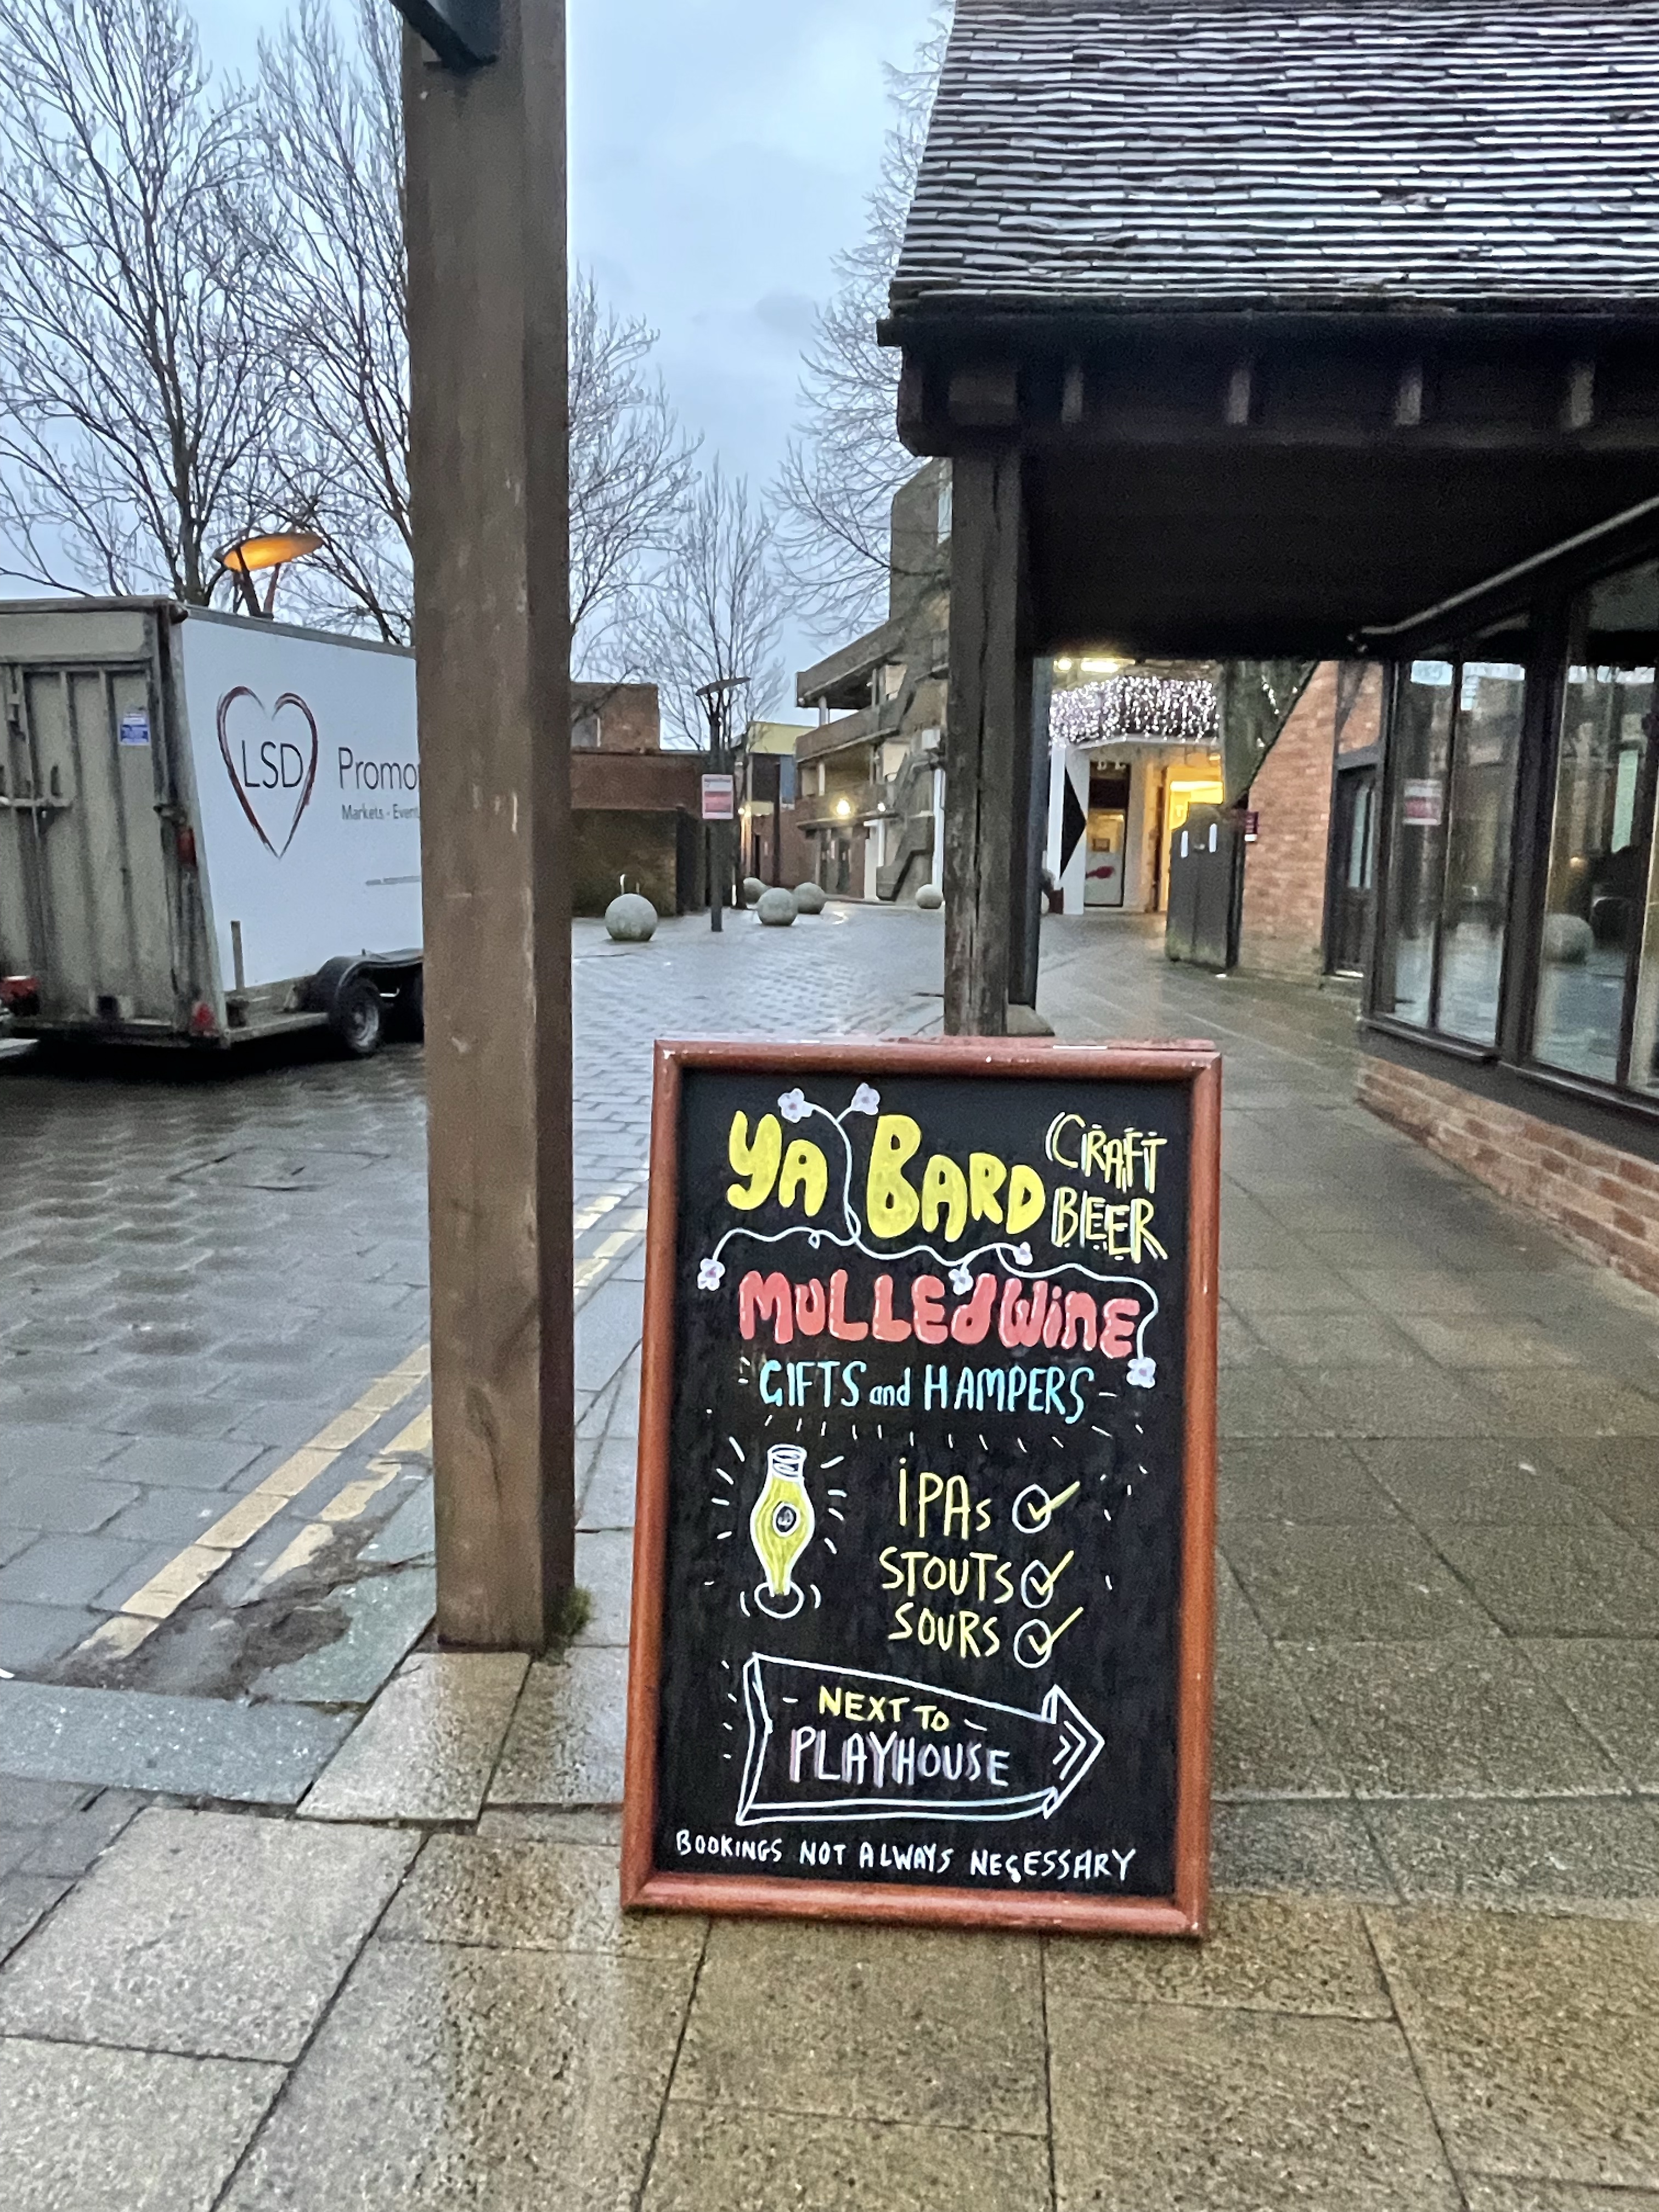 LSD Promo
Markets - Event
YA BARD CRAFT
BEER
MULLED WINE
GIFTS and HAMPERS
IPAs
STOUTS
SOURS
NEXT TO
PLAYHOUSE
BOOKINGS NOT ALWAYS NECESSARY